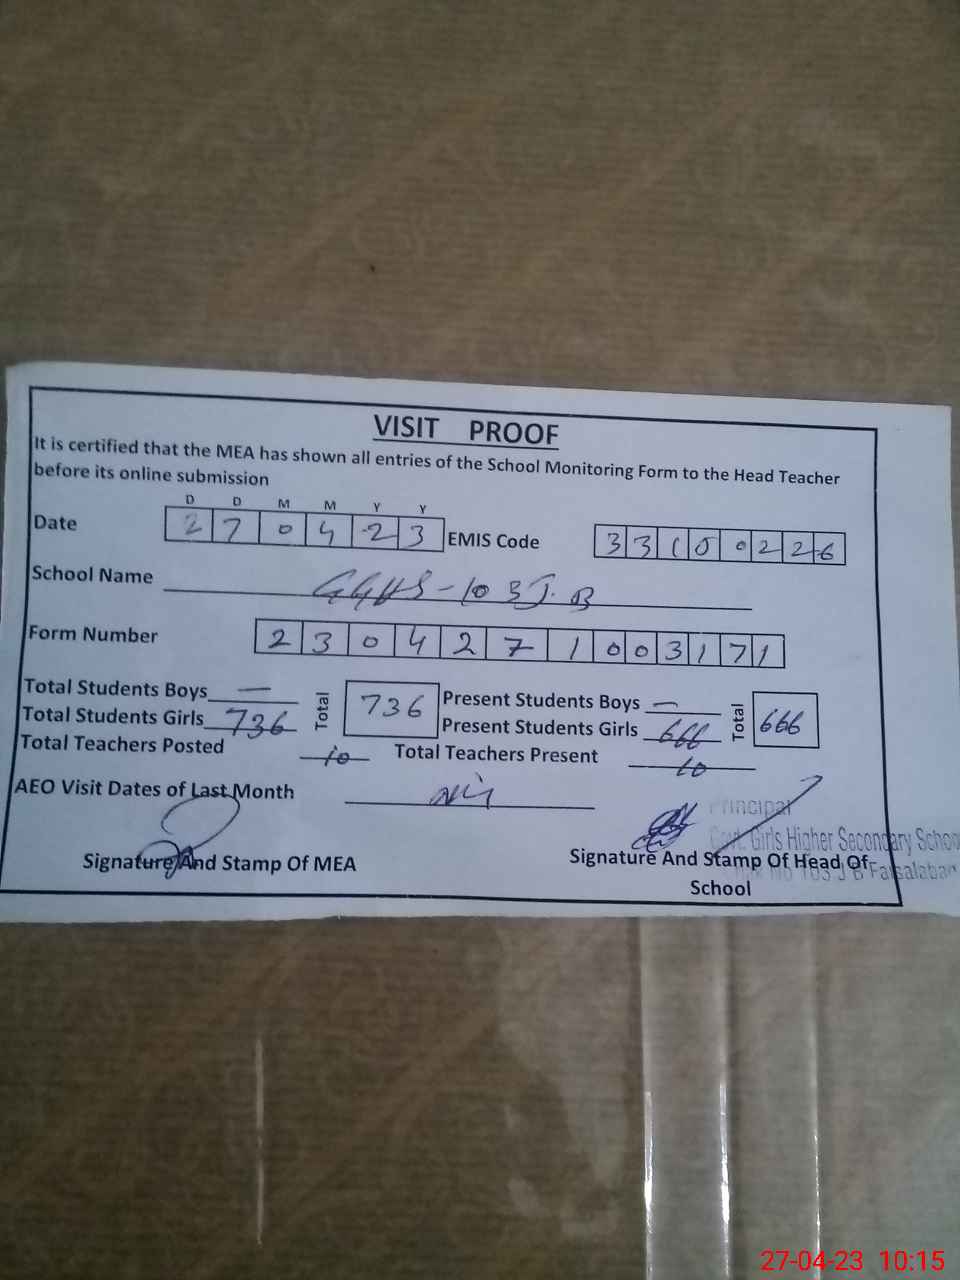 VISIT PROOF
It is certified that the MEA has shown all entries of the School Monitoring Form to the Head Teacher
before its online submission
D D M M Y Y
Date 2 7 0 4 2 3 EMIS Code 3 3 1 0 0 2 2 6
School Name GGHS-103J.B
Form Number 2 3 0 4 2 7 1 0 0 3 1 7 1
Total Students Boys — Total 736 Present Students Boys — Total 666
Total Students Girls 736 Present Students Girls 666
Total Teachers Posted 10 Total Teachers Present 10
AEO Visit Dates of Last Month Nil
Principal
Govt. Girls Higher Secondary School
103 J B Faisalabad
Signature And Stamp Of MEA Signature And Stamp Of Head Of
School
27-04-23 10:15